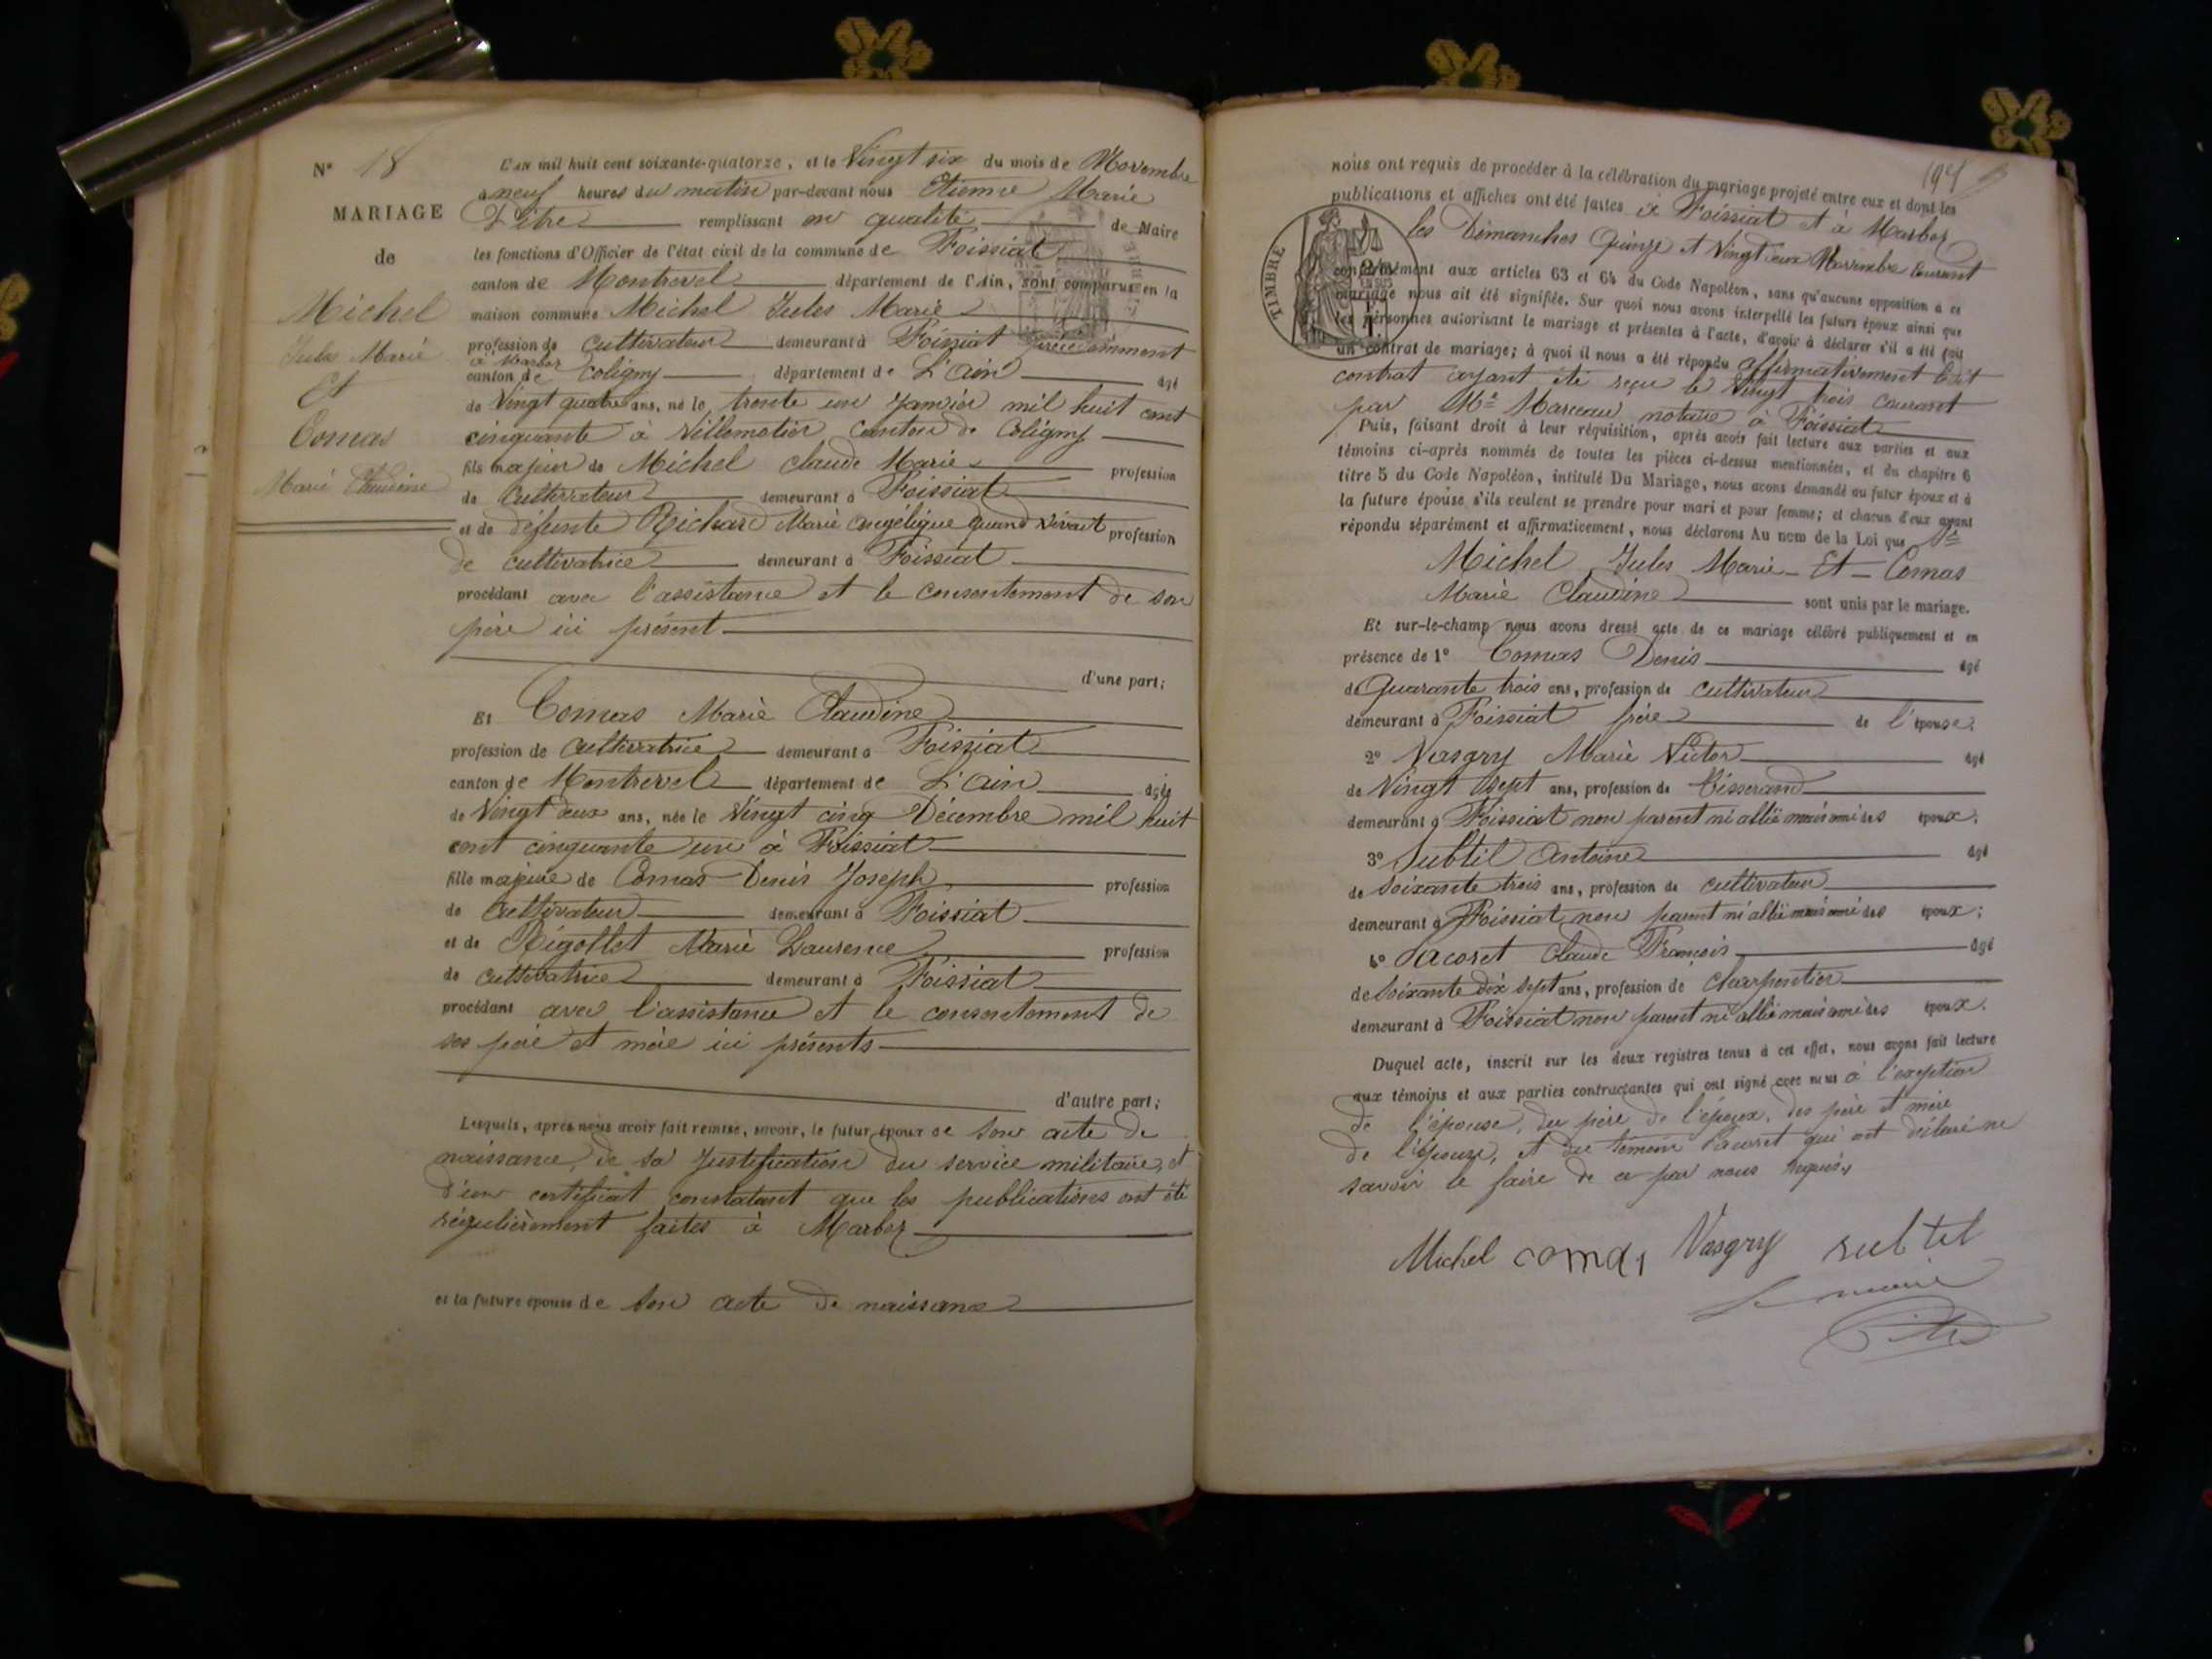 N° 18
MARIAGE
de
Michel
Jules Marie
Et
Comas
Marie Claudine
L'AN mil huit cent soixante-quatorze, et le Vingt six du mois de Novembre
à neuf heures du matin par-devant nous Etienne Marie
remplissant en qualité de Maire
les fonctions d'Officier de l'état civil de la commune de Foissiat
canton de Montrevel département de l'Ain, sont comparus en la
maison commune Michel Jules Marie
profession de cultivateur demeurant à Foissiat précédemment
à Marboz
canton de Coligny département de L'ain âgé
de Vingt quatre ans, né le trente un Janvier mil huit cent
cinquante à Villemotier Canton de Coligny
fils majeur de Michel Claude Marie profession
de Cultivateur demeurant à Foissiat
et de défunte Richard Marie Angélique quand vivait profession
de cultivatrice demeurant à Foissiat
procédant avec l'assistance et le consentement de son
père ici présent
d'une part;
Et Comas Marie Claudine
profession de Cultivatrice demeurant à Foissiat
canton de Montrevel département de L'ain âgée
de Vingt deux ans, née le Vingt cinq Décembre mil huit
cent cinquante un à Foissiat
fille majeure de Comas Denis Joseph profession
de Cultivateur demeurant à Foissiat
et de Rigollet Marie Laurence profession
de cultivatrice demeurant à Foissiat
procédant avec l'assistance et le consentement de
ses père et mère ici présents
d'autre part;
Lesquels, après nous avoir fait remise, savoir, le futur époux de son acte de
naissance, de sa Justification du service militaire, et
d'un certificat constatant que les publications ont été
régulièrement faites à Marboz
et la future épouse de son acte de naissance
nous ont requis de procéder à la célébration du mariage projeté entre eux et dont les
publications et affiches ont été faites à Foissiat et à Marboz
les Dimanches Quinze et Vingt deux Novembre Courant
TIMBRE
conformément aux articles 63 et 64 du Code Napoléon, sans qu'aucune opposition à ce
mariage nous ait été signifiée. Sur quoi nous avons interpellé les futurs époux ainsi que
les personnes autorisant le mariage et présentes à l'acte, d'avoir à déclarer s'il a été fait
un contrat de mariage; à quoi il nous a été répondu affirmativement ledit
contrat ayant été reçu le Vingt trois courant
par Me Marceau notaire à Foissiat
Puis, faisant droit à leur réquisition, après avoir fait lecture aux parties et aux
témoins ci-après nommés de toutes les pièces ci-dessus mentionnées, et du chapitre 6
titre 5 du Code Napoléon, intitulé Du Mariage, nous avons demandé au futur époux et à
la future épouse s'ils veulent se prendre pour mari et pour femme; et chacun d'eux ayant
répondu séparément et affirmativement, nous déclarons Au nom de la Loi que
Michel Jules Marie - Et - Comas
Marie Claudine sont unis par le mariage.
Et sur-le-champ nous avons dressé acte de ce mariage célébré publiquement et en
présence de 1° Comas Denis âgé
de Quarante trois ans, profession de cultivateur
demeurant à Foissiat frère de l'épouse.
2° Vasgry Marie Victor âgé
de Vingt Sept ans, profession de Tisserand
demeurant à Foissiat non parent ni allié mais ami des époux.
3° Subtil Antoine âgé
de Soixante trois ans, profession de cultivateur
demeurant à Foissiat non parent ni allié mais ami des époux;
4° Pacoret Claude François âgé
de Soixante Dix Sept ans, profession de Charpentier
demeurant à Foissiat non parent ni allié mais ami des époux.
Duquel acte, inscrit sur les deux registres tenus à cet effet, nous avons fait lecture
aux témoins et aux parties contractantes qui ont signé avec nous à l'exception
de l'épouse, du père de l'époux, des père et mère
de l'épouse, et du témoin Pacoret qui ont déclaré ne
savoir le faire de ce par nous requis.
Michel comas Vasgry subtil
Le maire